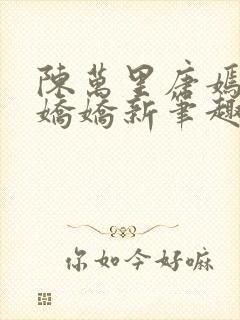 陳萬里唐嫣
嬌嬌新筆趣
你如今好嘛